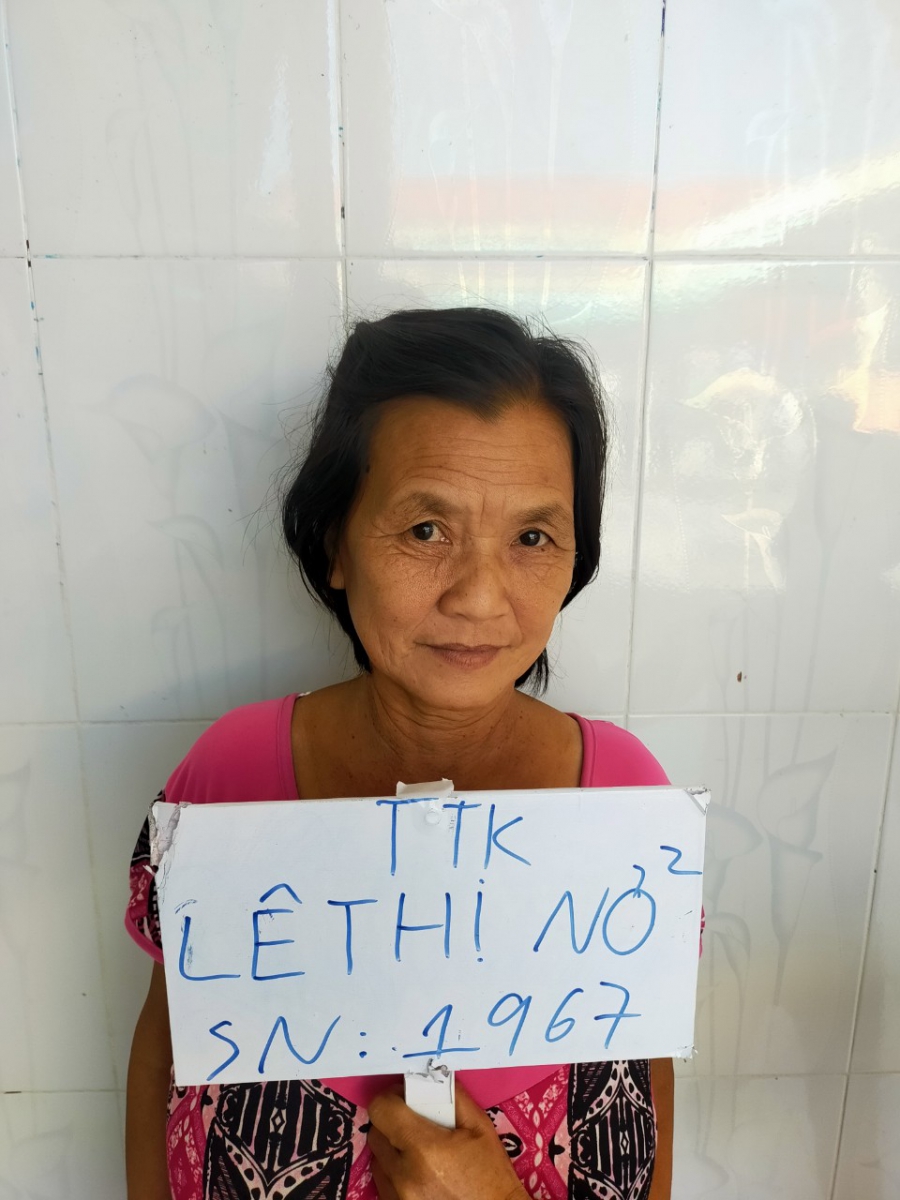 TTK
LÊ THỊ NỞ ²
SN: 1967